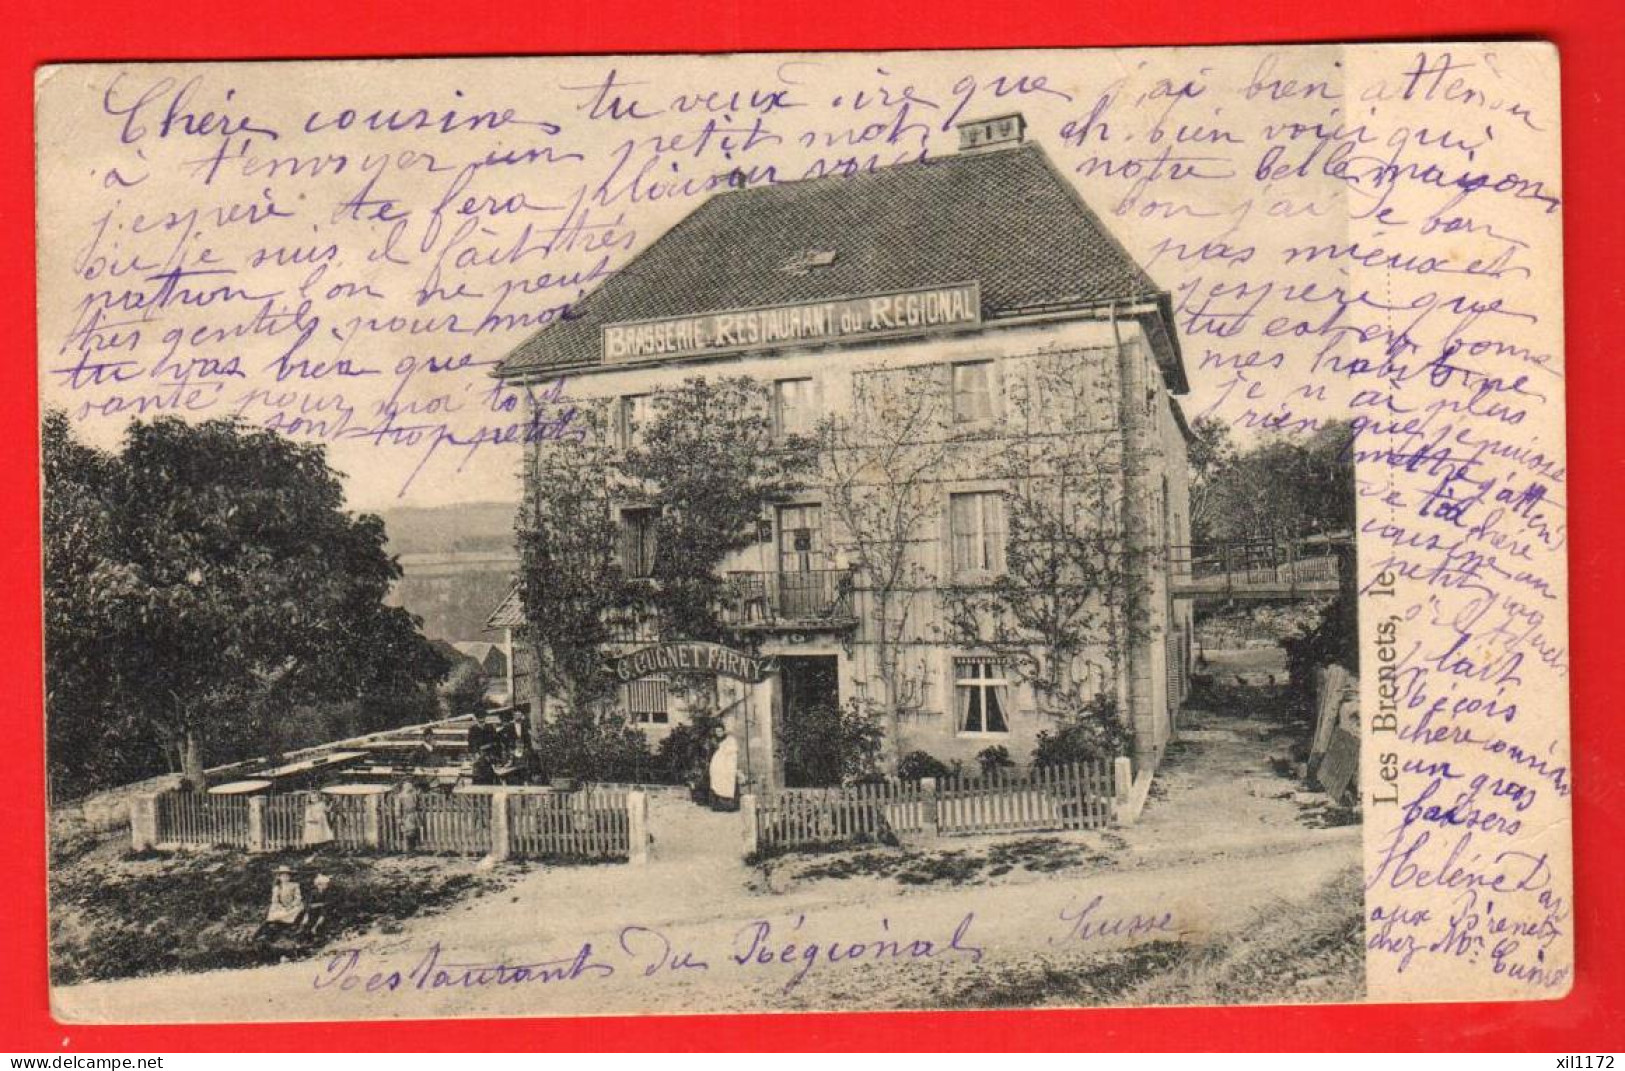 Chére cousine tu veux ire que j'ai bien attendu
à t'envoyer un petit mot eh. bien voici qui
j'espère te fera plaisir voici notre belle maison
ou je suis il fait trés bon j'ai de bon
patron l'on ne peut pas mieux et
tres gentils pour moi j'espère que
tu vas bien que tu est en bonne
santé pour moi tout mes habits ne
sont trop petit je n'ai plus
rien que je puisse
mettre
chére
cousine un
petit
plait
chere cousine
un gros
baisers
Hélène
aux Brenets
chez Mr.
BRASSERIE-RESTAURANT du REGIONAL
G. CUGNET FARNY
Les Brenets, le
Restaurant du Régional Suisse
xil1172